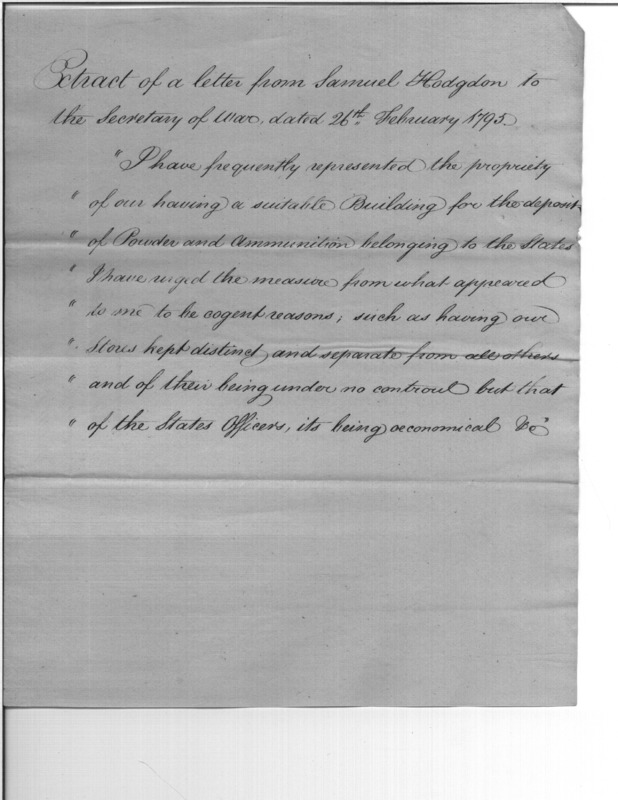 Extract of a letter from Samuel Hodgdon to
the Secretary of War, dated 26th. February 1795.
"I have frequently represented the propriety
" of our having a suitable Building for the deposit
" of Powder and Ammunition belonging to the States
" I have urged the measure from what appeared
" to me to be cogent reasons; such as having our
" Stores kept distinct and separate from all others
" and of their being under no controul but that
" of the States Officers, its being oeconomical &c"